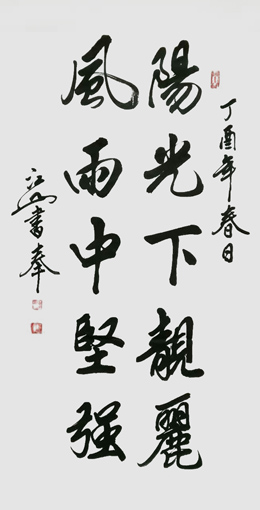 丁酉年春日
陽光下靚麗
風雨中堅强
江山書奉